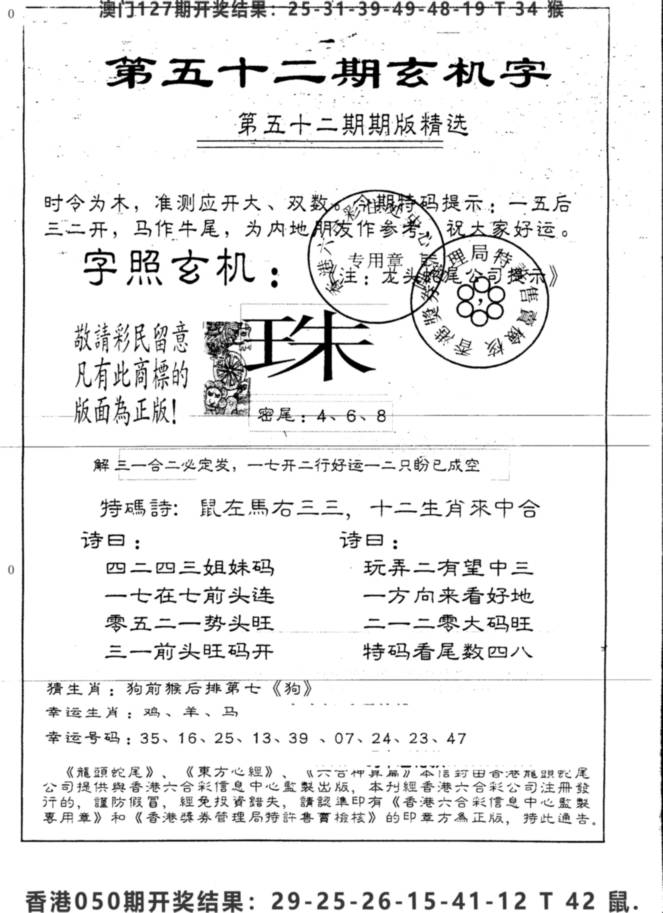 澳门127期开奖结果：25-31-39-49-48-19 T 34 猴
第五十二期玄机字
第五十二期期版精选
时令为木，准测应开大、双数。今期特码提示：一五后
三二开，马作牛尾，为内地朋友作参考，祝大家好运。
字照玄机：
《注：龙头蛇尾公司提示》
专用章
敬請彩民留意
凡有此商標的
版面為正版!
珠
密尾：4、6、8
解 三一合二必定发，一七开二行好运一二只盼已成空
特碼詩: 鼠左馬右三三，十二生肖來中合
诗曰：
四二四三姐妹码
一七在七前头连
零五二一势头旺
三一前头旺码开
诗曰：
玩弄二有望中三
一方向来看好地
二一二零大码旺
特码看尾数四八
猜生肖：狗前猴后排第七《狗》
幸运生肖：鸡、羊、马
幸运号码：35、16、25、13、39 、07、24、23、47
《龍頭蛇尾》、《東方心經》、《六合神算篇》本信封由香港龍頭蛇尾
公司提供與香港六合彩信息中心監製出版，本刊經香港六合彩公司注冊發
行的，謹防假冒，經免投資錯失，請認準印有《香港六合彩信息中心監製
專用章》和《香港獎券管理局特許售賣檢核》的印章方為正版，特此通告。
香港050期开奖结果：29-25-26-15-41-12 T 42 鼠.